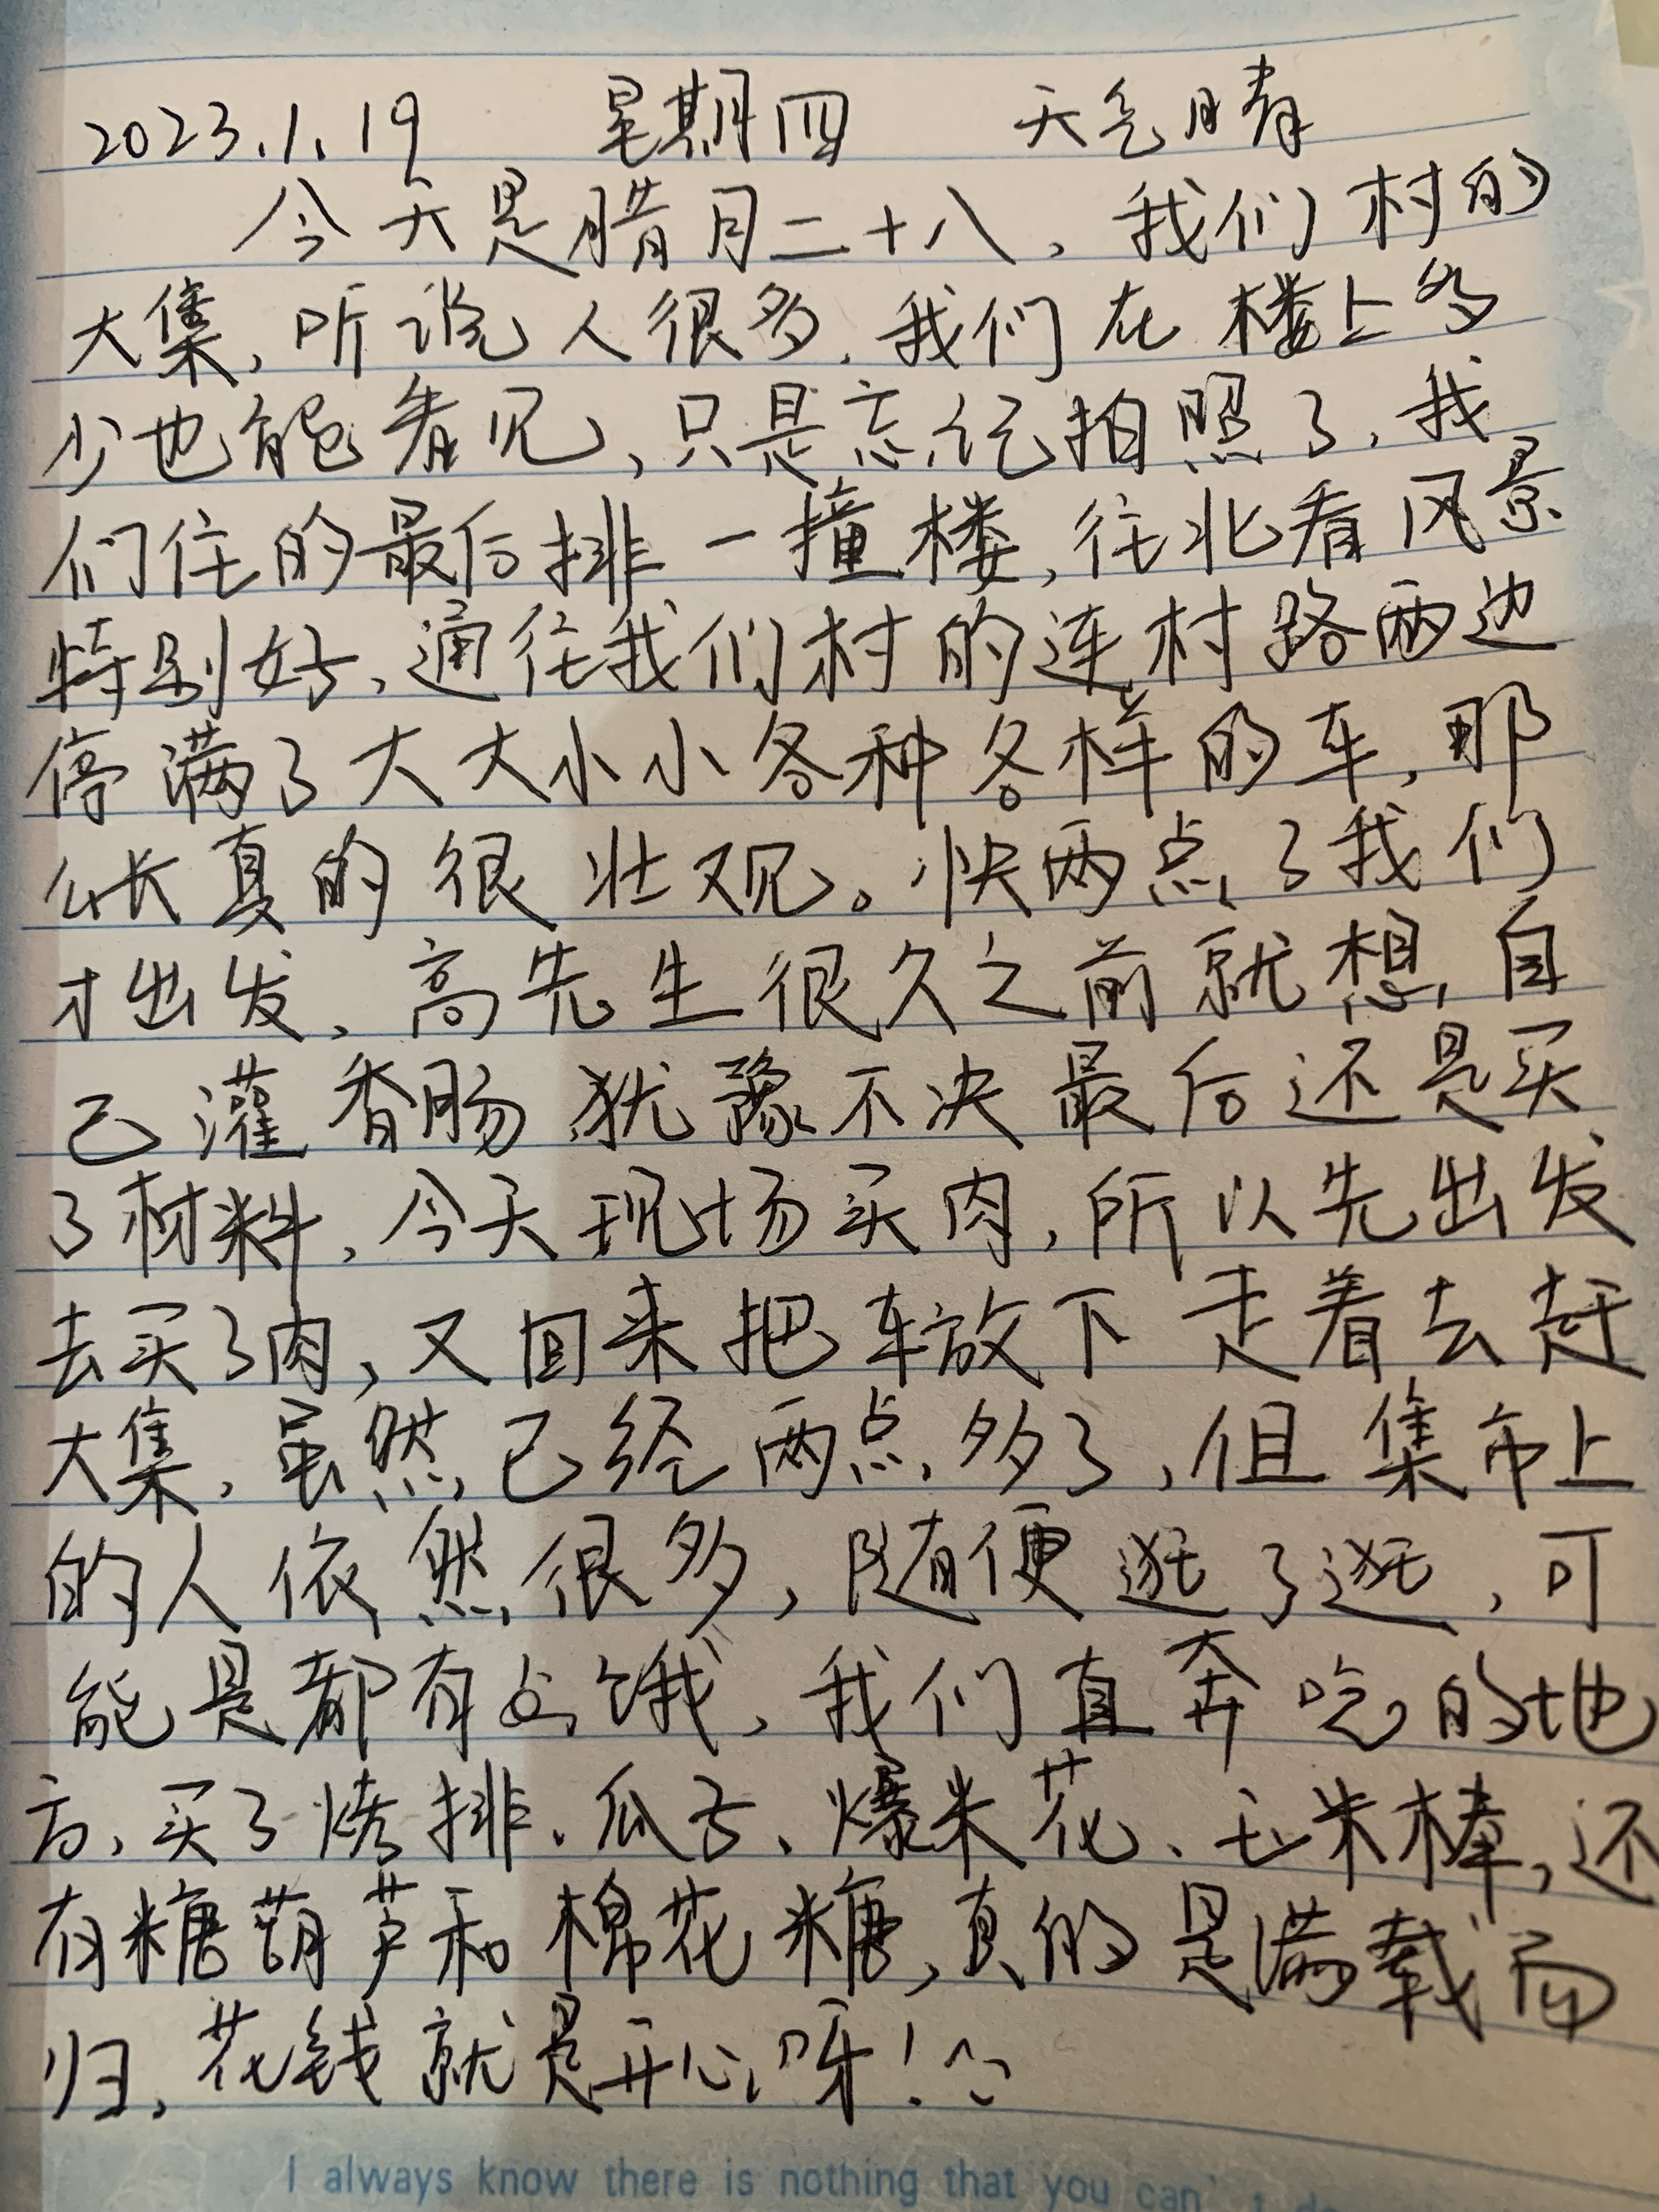 2023.1.19 星期四 天气晴
今天是腊月二十八,我们村的
大集,听说人很多,我们在楼上多
少也能看见,只是忘记拍照了,我
们住的最后排一撞楼,往北看风景
特别好,通往我们村的连村路两边
停满了大大小小各种各样的车,那
么长真的很壮观。快两点了我们
才出发,高先生很久之前就想自
己灌香肠犹豫不决最后还是买
了材料,今天现场买肉,所以先出发
去买了肉,又回来把车放下走着去赶
大集,虽然已经两点多了,但集市上
的人依然很多,随便逛了逛,可
能是都有点饿,我们直奔吃的地
方,买了烤排、瓜子、爆米花、玉米棒,还
有糖葫芦和棉花糖,真的是满载而
归,花钱就是开心呀!
I always know there is nothing that you can't do